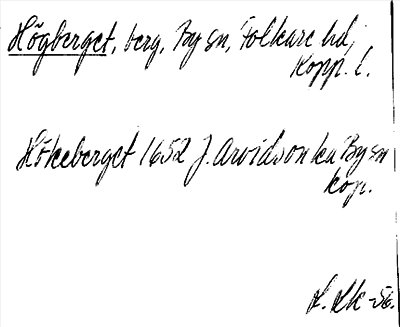 Högberget, berg, By sn, Folkare hd,
Kopp. l.
Hökeberget 1652 J. Arvidson ka By sn
kop.